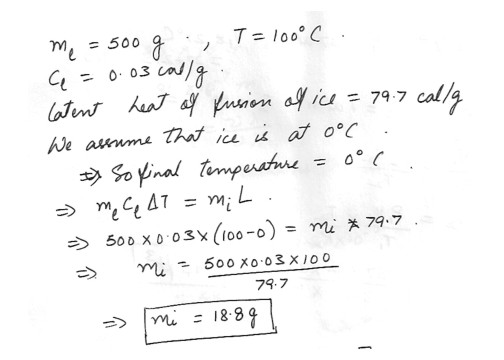 mₗ = 500 g . , T = 100° C .
Cₗ = 0.03 cal/g .
Latent heat of fusion of ice = 79.7 cal/g
We assume that ice is at 0°C .
⇒ So final temperature = 0° C .
⇒ mₗ Cₗ ΔT = mᵢ L .
⇒ 500 × 0.03 × (100-0) = mi * 79.7 .
⇒ mi = 500 × 0.03 × 100 / 79.7
⇒ mi = 18.8 g